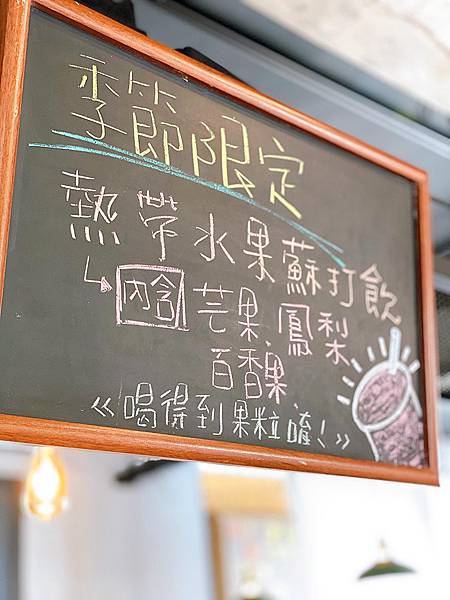 季節限定
熱帶水果蘇打飲
↳內含 芒果、鳳梨
百香果.
《喝得到果粒唷!》